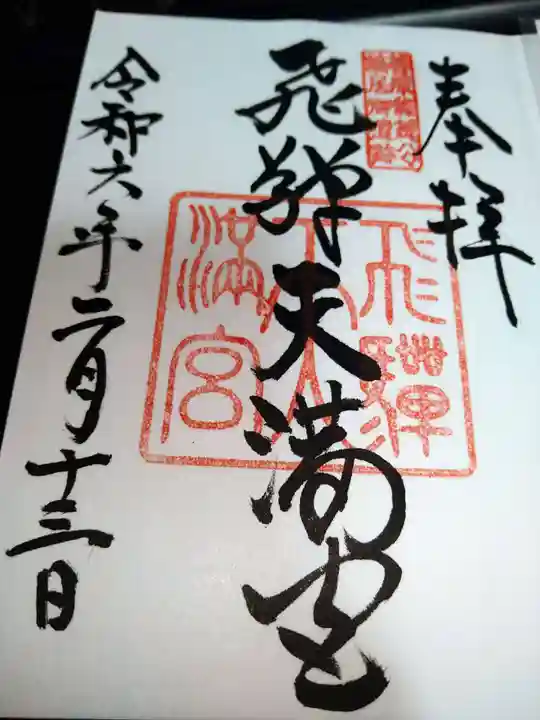 奉拝
飛騨天満宮
飛騨
天満宮
令和六年二月十三日